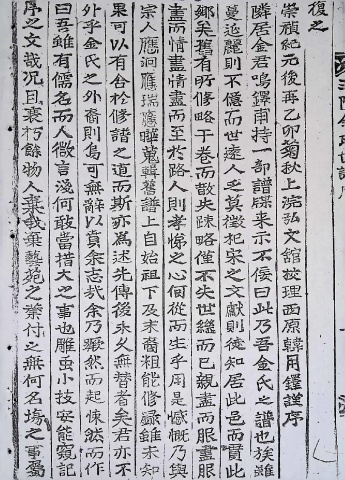 復之
崇禎紀元後再乙卯菊秋上浣弘文館校理西原韓用鐸謹序
隣居金君鳴鐸甫持一部譜牒來示不佞曰此乃吾金氏之譜也族雖
蔓延麗則不億而世遠人亡莫徵杞宋之文獻則徒知居此邑而貫此
鄉矣舊有所修略干卷而散失疎略僅不失世繼而已親盡而服盡服
盡而情盡情盡而至於路人則孝悌之心何從而生乎用是慨乃與
宗人應泂應瑞應曄蒐輯舊譜上自始祖下及末裔粗能修錄雖未知
果可以有合於修譜之道而斯亦爲述先傳後永久無替者矣君亦不
外乎金氏之外裔則烏可無辭以賁余志哉余乃蹶然而起悚然而作
曰吾雖有儒名而人微言淺何敢當措大之事也雕虫小技安能窺記
序之文哉况日衰朽餘物人棄我棄藝苑之業付之無何名塲之事屬